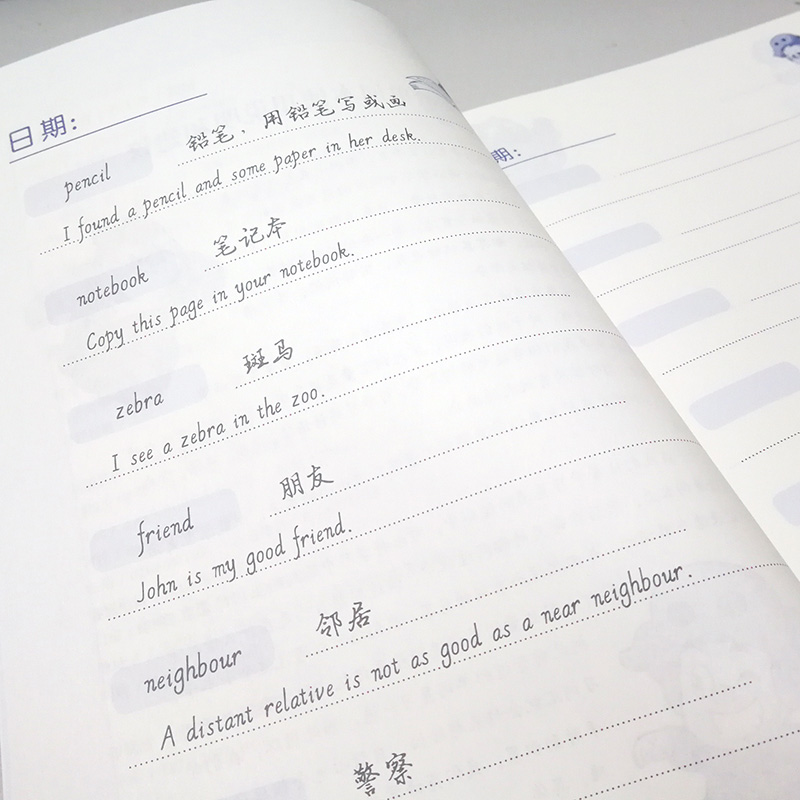 日期:
pencil 铅笔,用铅笔写或画
I found a pencil and some paper in her desk.
notebook 笔记本
Copy this page in your notebook.
zebra 斑马
I see a zebra in the zoo.
friend 朋友
John is my good friend.
neighbour 邻居
A distant relative is not as good as a near neighbour.
警察
期: